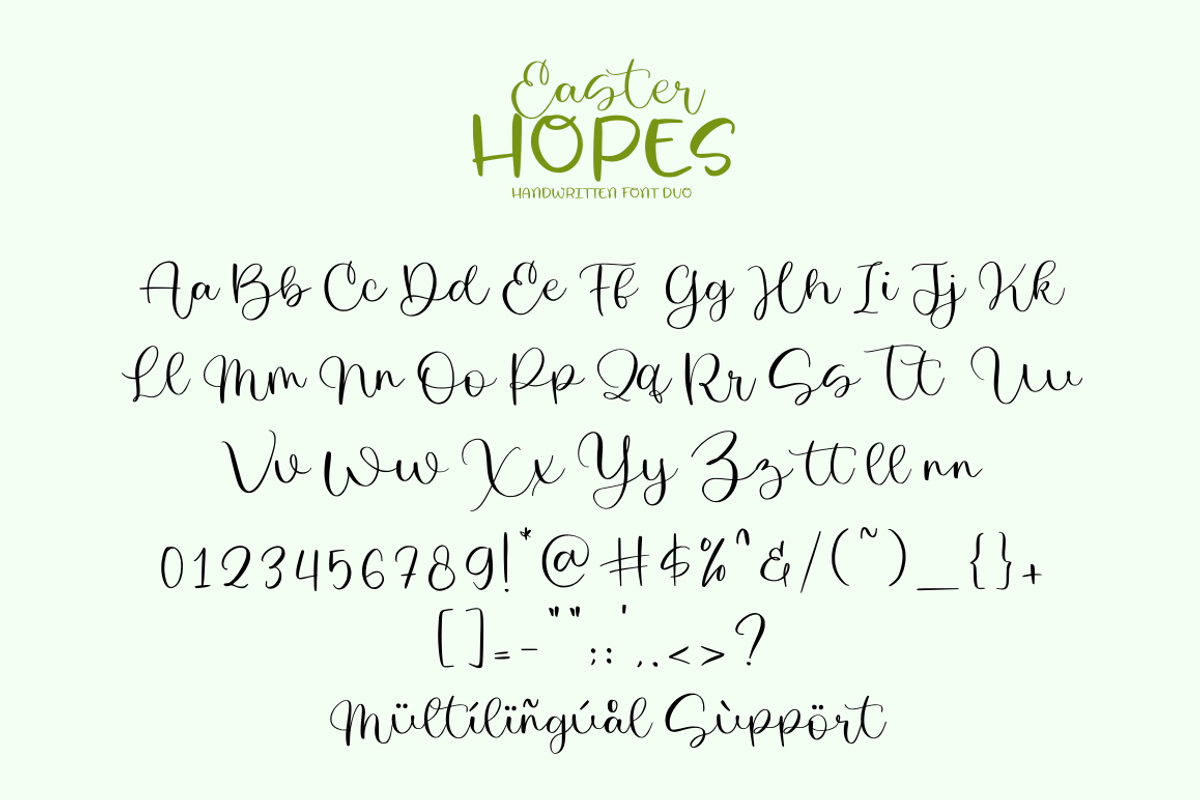 Easter
HOPES
HANDWRITTEN FONT DUO
Aa Bb Cc Dd Ee Ff Gg Hh Ii Jj Kk
Ll Mm Nn Oo Pp Qq Rr Ss Tt Uu
Vv Ww Xx Yy Zz tt ll nn
0123456789!*@#$%^&/(~)_{}+
[]=-"";:',.<>?
Mültílïñgúål Sùppört